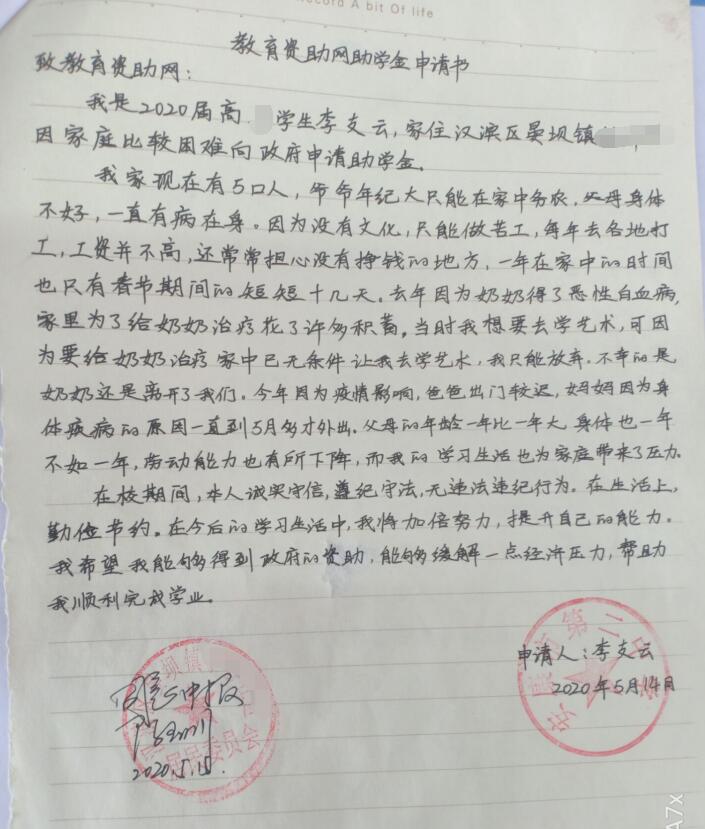 ecord A bit Of life
教育资助网助学金申请书
致教育资助网：
我是2020届高 学生李支云，家住汉滨区晏坝镇
因家庭比较困难向政府申请助学金。
我家现在有5口人，爷爷年纪大只能在家中务农，父母身体
不好，一直有病在身。因为没有文化，只能做苦工，每年去各地打
工，工资并不高，还常常担心没有挣钱的地方，一年在家中的时间
也只有春节期间的短短十几天。去年因为奶奶得了恶性白血病，
家里为了给奶奶治疗花了许多积蓄。当时我想要去学艺术，可因
为要给奶奶治疗家中已无条件让我去学艺术，我只能放弃。不幸的是
奶奶还是离开了我们。今年因为疫情影响，爸爸出门较迟，妈妈因为身
体疾病的原因一直到5月多才外出。父母的年龄一年比一年大身体也一年
不如一年，劳动能力也有所下降，而我的学习生活也为家庭带来了压力。
在校期间，本人诚实守信，遵纪守法，无违法违纪行为。在生活上，
勤俭节约。在今后的学习生活中，我将加倍努力，提升自己的能力。
我希望我能够得到政府的资助，能够缓解一点经济压力，帮助
我顺利完成学业。
申请人：李支云
2020年5月14日
第二
坝镇
申报
居民委员会
2020.5.15.
A7x